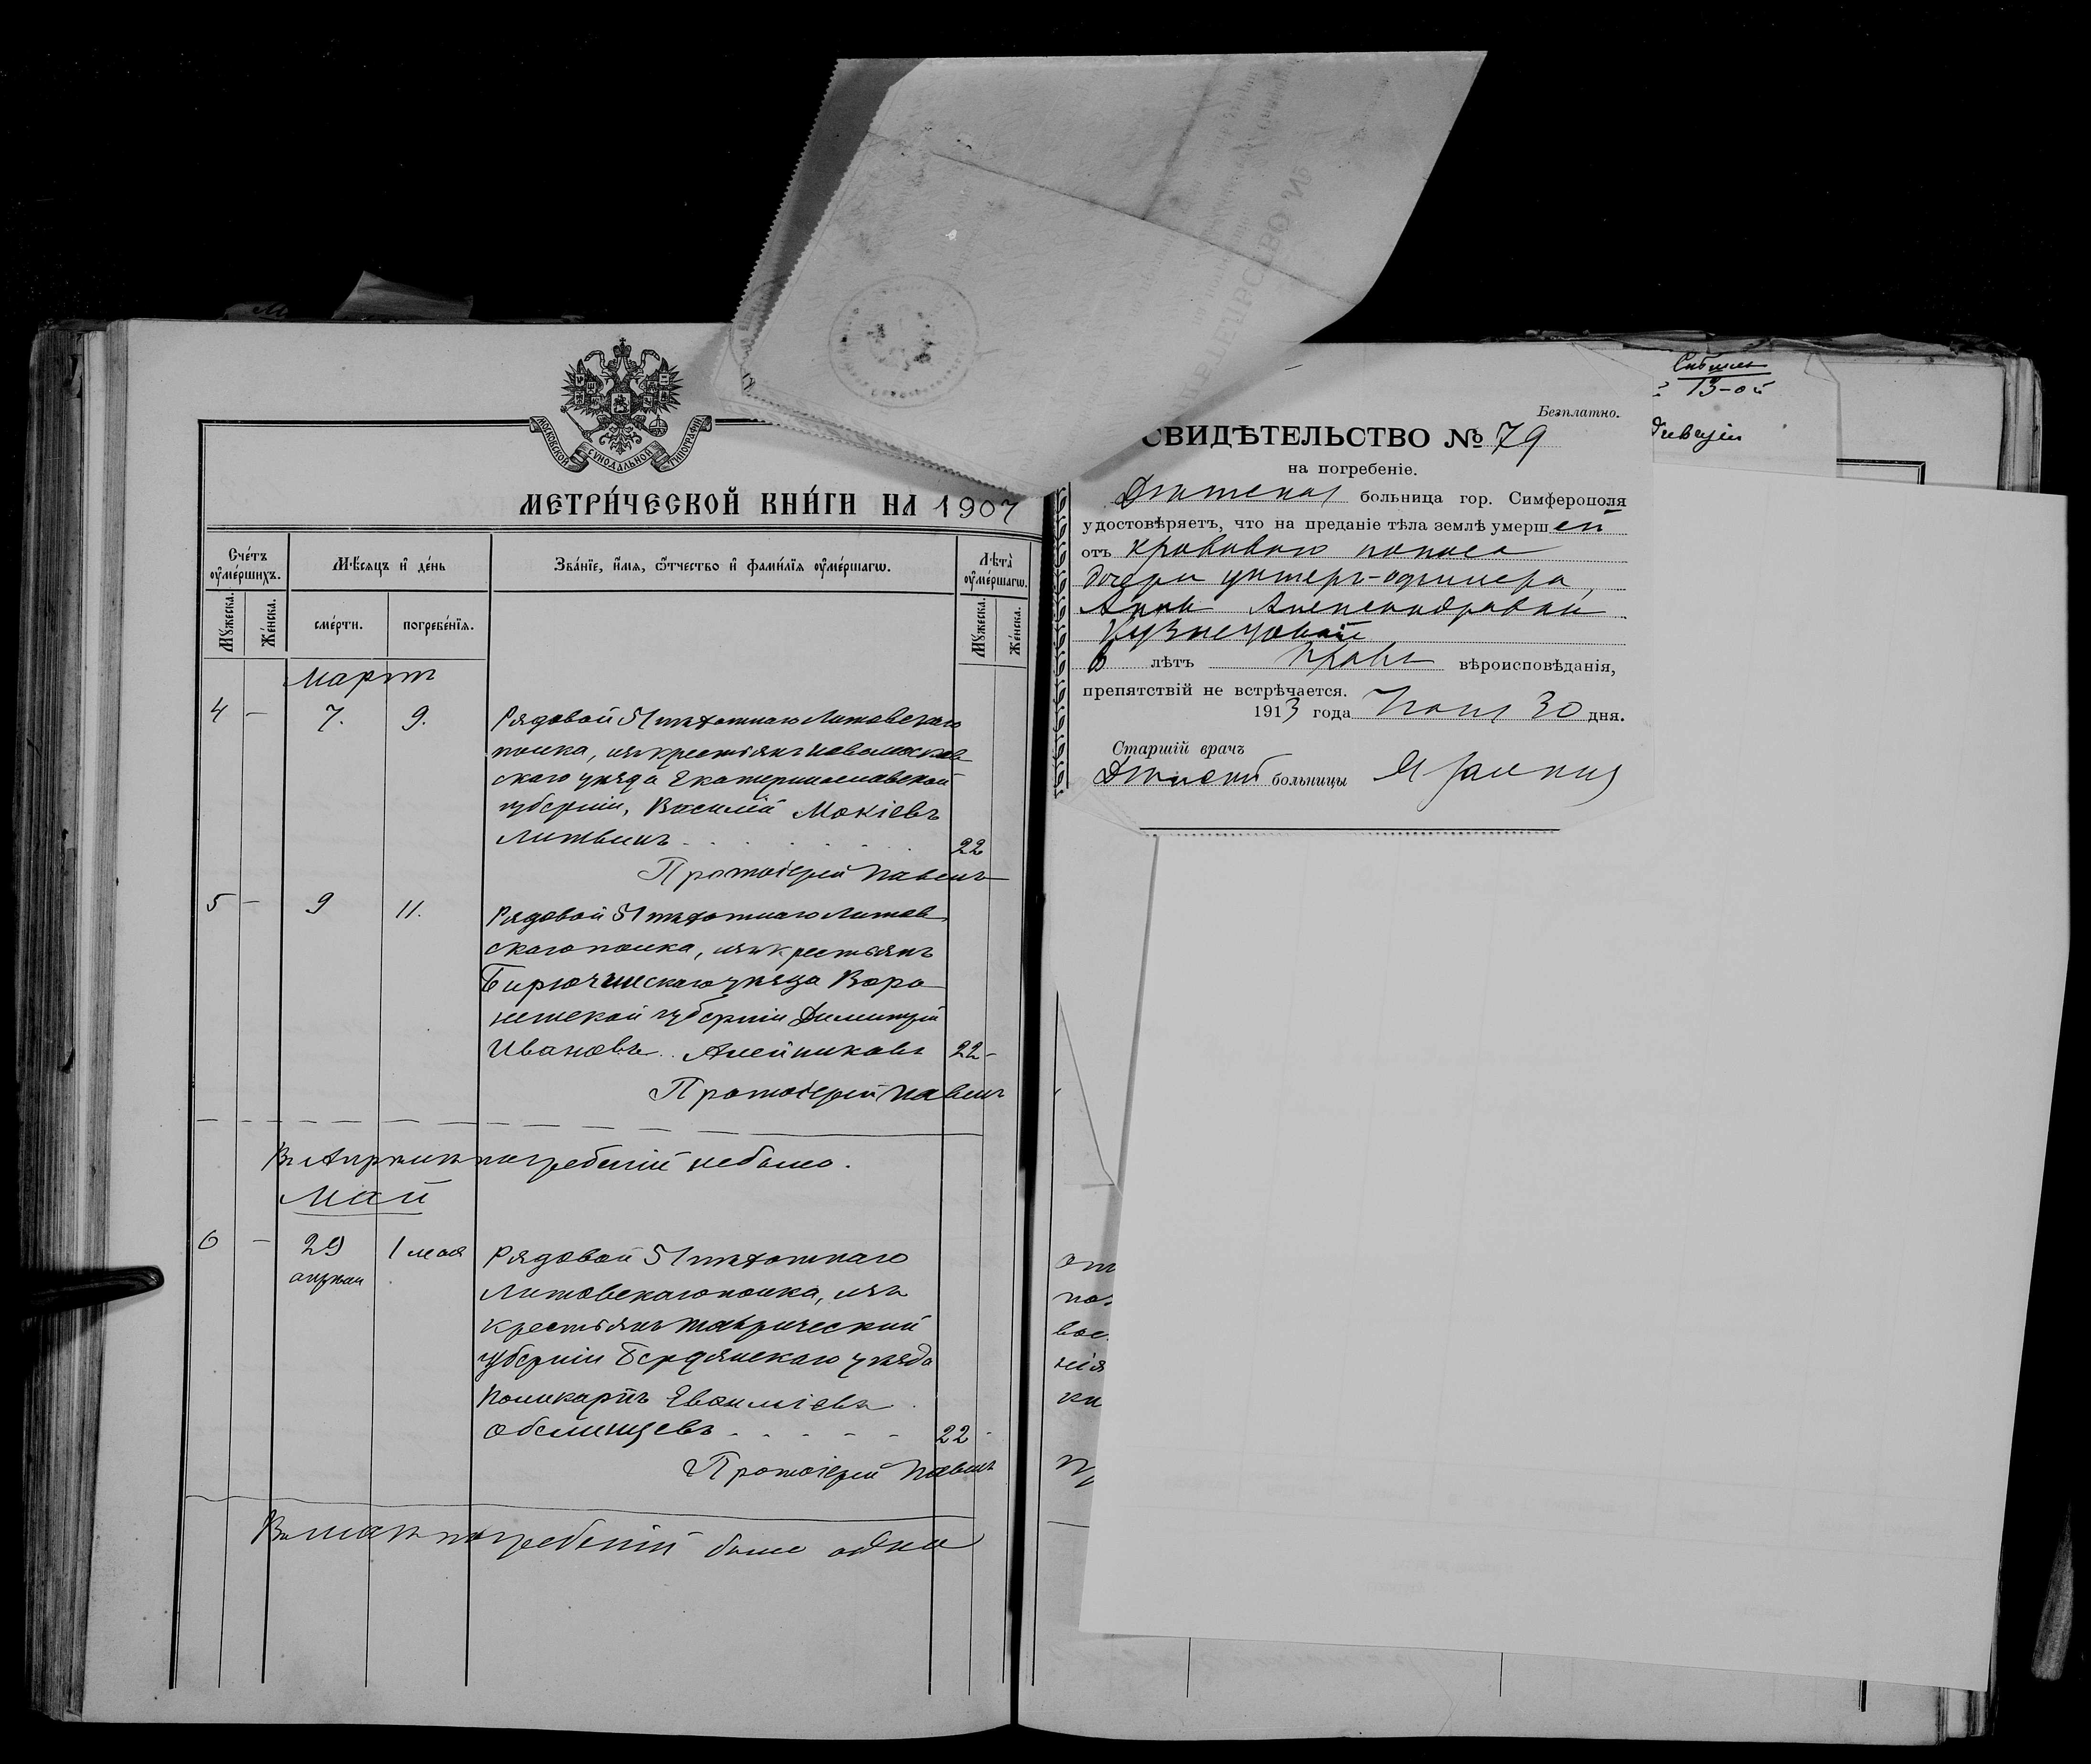 МОСКОВСКОЙ СУНОДАЛЬНОЙ ТИПОГРАФІИ
МЕТРИ́ЧЕСКОЙ КНИ́ГИ НА 1907
Сче́тъ ᲂу҆ме́ршихъ.
Мѣ́сяцъ и҆ де́нь
Зва́нїе, и҆́мя, ѻ҆́тчество и҆ фами́лїя ᲂу҆ме́ршагѡ.
Лѣ́та ᲂу҆ме́ршагѡ.
Мꙋ́жеска.
Же́нска.
сме́рти.
погребе́нїя.
Мꙋ́жеска.
Же́нска.
Мартъ
4 — 7. 9. Рядовой 51 пѣхотнаго Литовскаго
полка, изъ крестьянъ Новомосков
скаго уѣзда Екатеринославской
губерніи, Василій Мокіевъ
Литвинъ 22
Протоіерей Павелъ
5 — 9 11. Рядовой 51 пѣхотнаго Литов
скаго полка, изъ крестьянъ
Бирюченскаго уѣзда Воро
нежской губерніи Димитрій
Ивановъ Алейниковъ 22 —
Протоіерей Павелъ
Въ Апрѣлѣ погребеній не было.
Май
6 — 29 апрѣля 1 мая Рядовой 51 пѣхотнаго
Литовскаго полка, изъ
крестьянъ Таврической
губерніи Бердянскаго уѣзда
Поликарпъ
22 —
Протоіерей Павелъ
Въ маѣ погребеній было одно
СВИДѢТЕЛЬСТВО №
13-ой
дивизіи
Безплатно.
СВИДѢТЕЛЬСТВО № 79
на погребеніе.
Дѣтская больница гор. Симферополя
удостовѣряетъ, что на преданіе тѣла землѣ умершей
отъ кроваваго поноса
дочери унтеръ-офицера,
Анны Александровны
Кузнецовой
лѣтъ Правъ вѣроисповѣданія,
препятствій не встрѣчается.
1913 года 30 дня.
Старшій врачъ
Дѣтской больницы